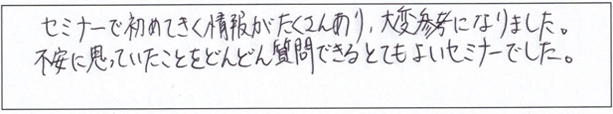 セミナーで初めてきく情報がたくさんあり、大変参考になりました。
不安に思っていたことをどんどん質問できるとてもよいセミナーでした。